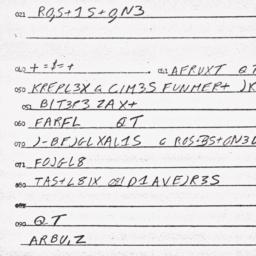 021 RO,S+1S+O,N3
040 +=1=+ 041 AFRUXT QT
050 KREPL3X G CIM3S FUNMER+ )K
052 BIT3P3 ZAX+
060 FARFL QT
070 )-BF)GLXAL1S G ROS-BS+ON3L
071 FO)GL8
080 TAS+L8IX 081 D1AVE)R3S
090 QT
ARBU,Z